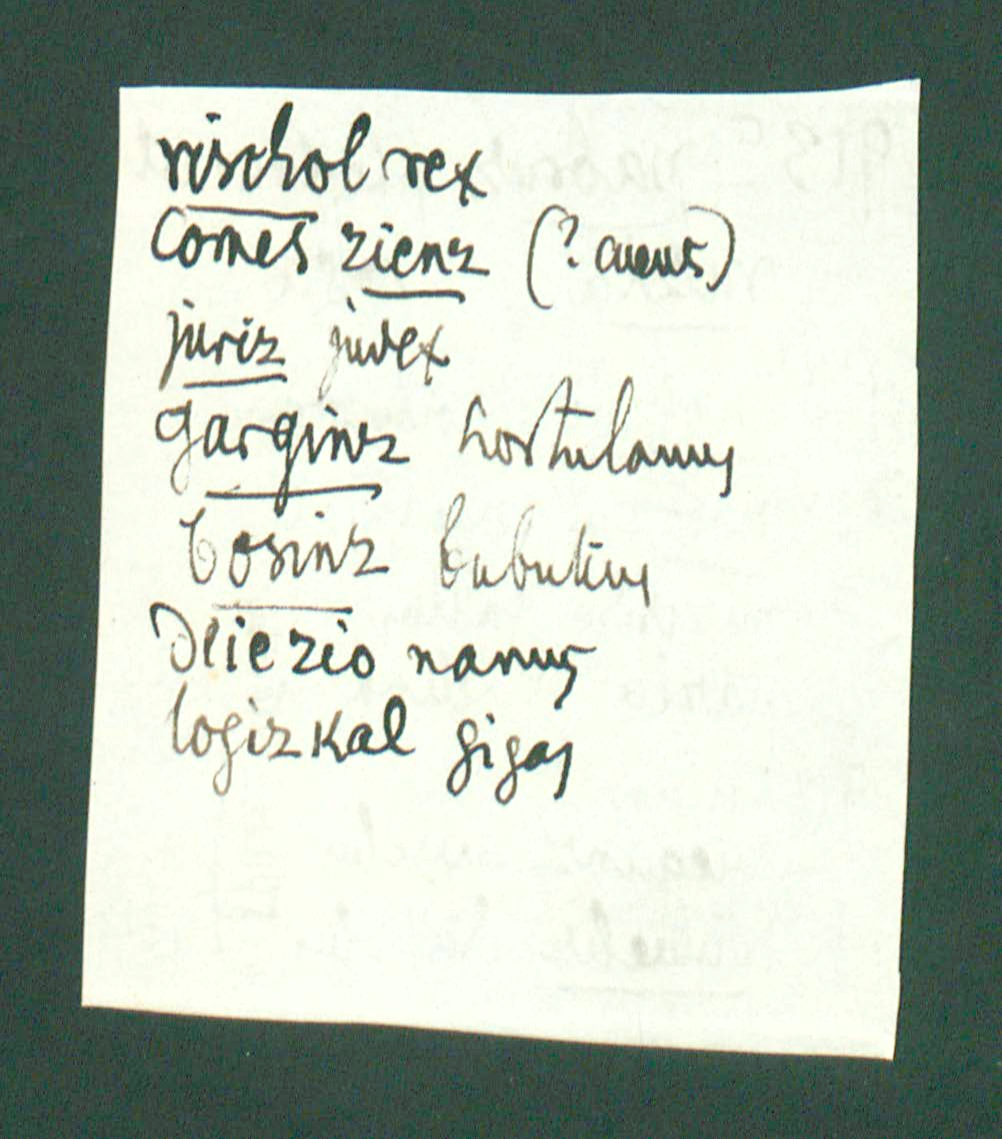 rischol rex
Comes zienz (? cuens)
juriz judex
garginz hortulanus
bosinz bubulcus
Dliezio nanus
logizkal gigas